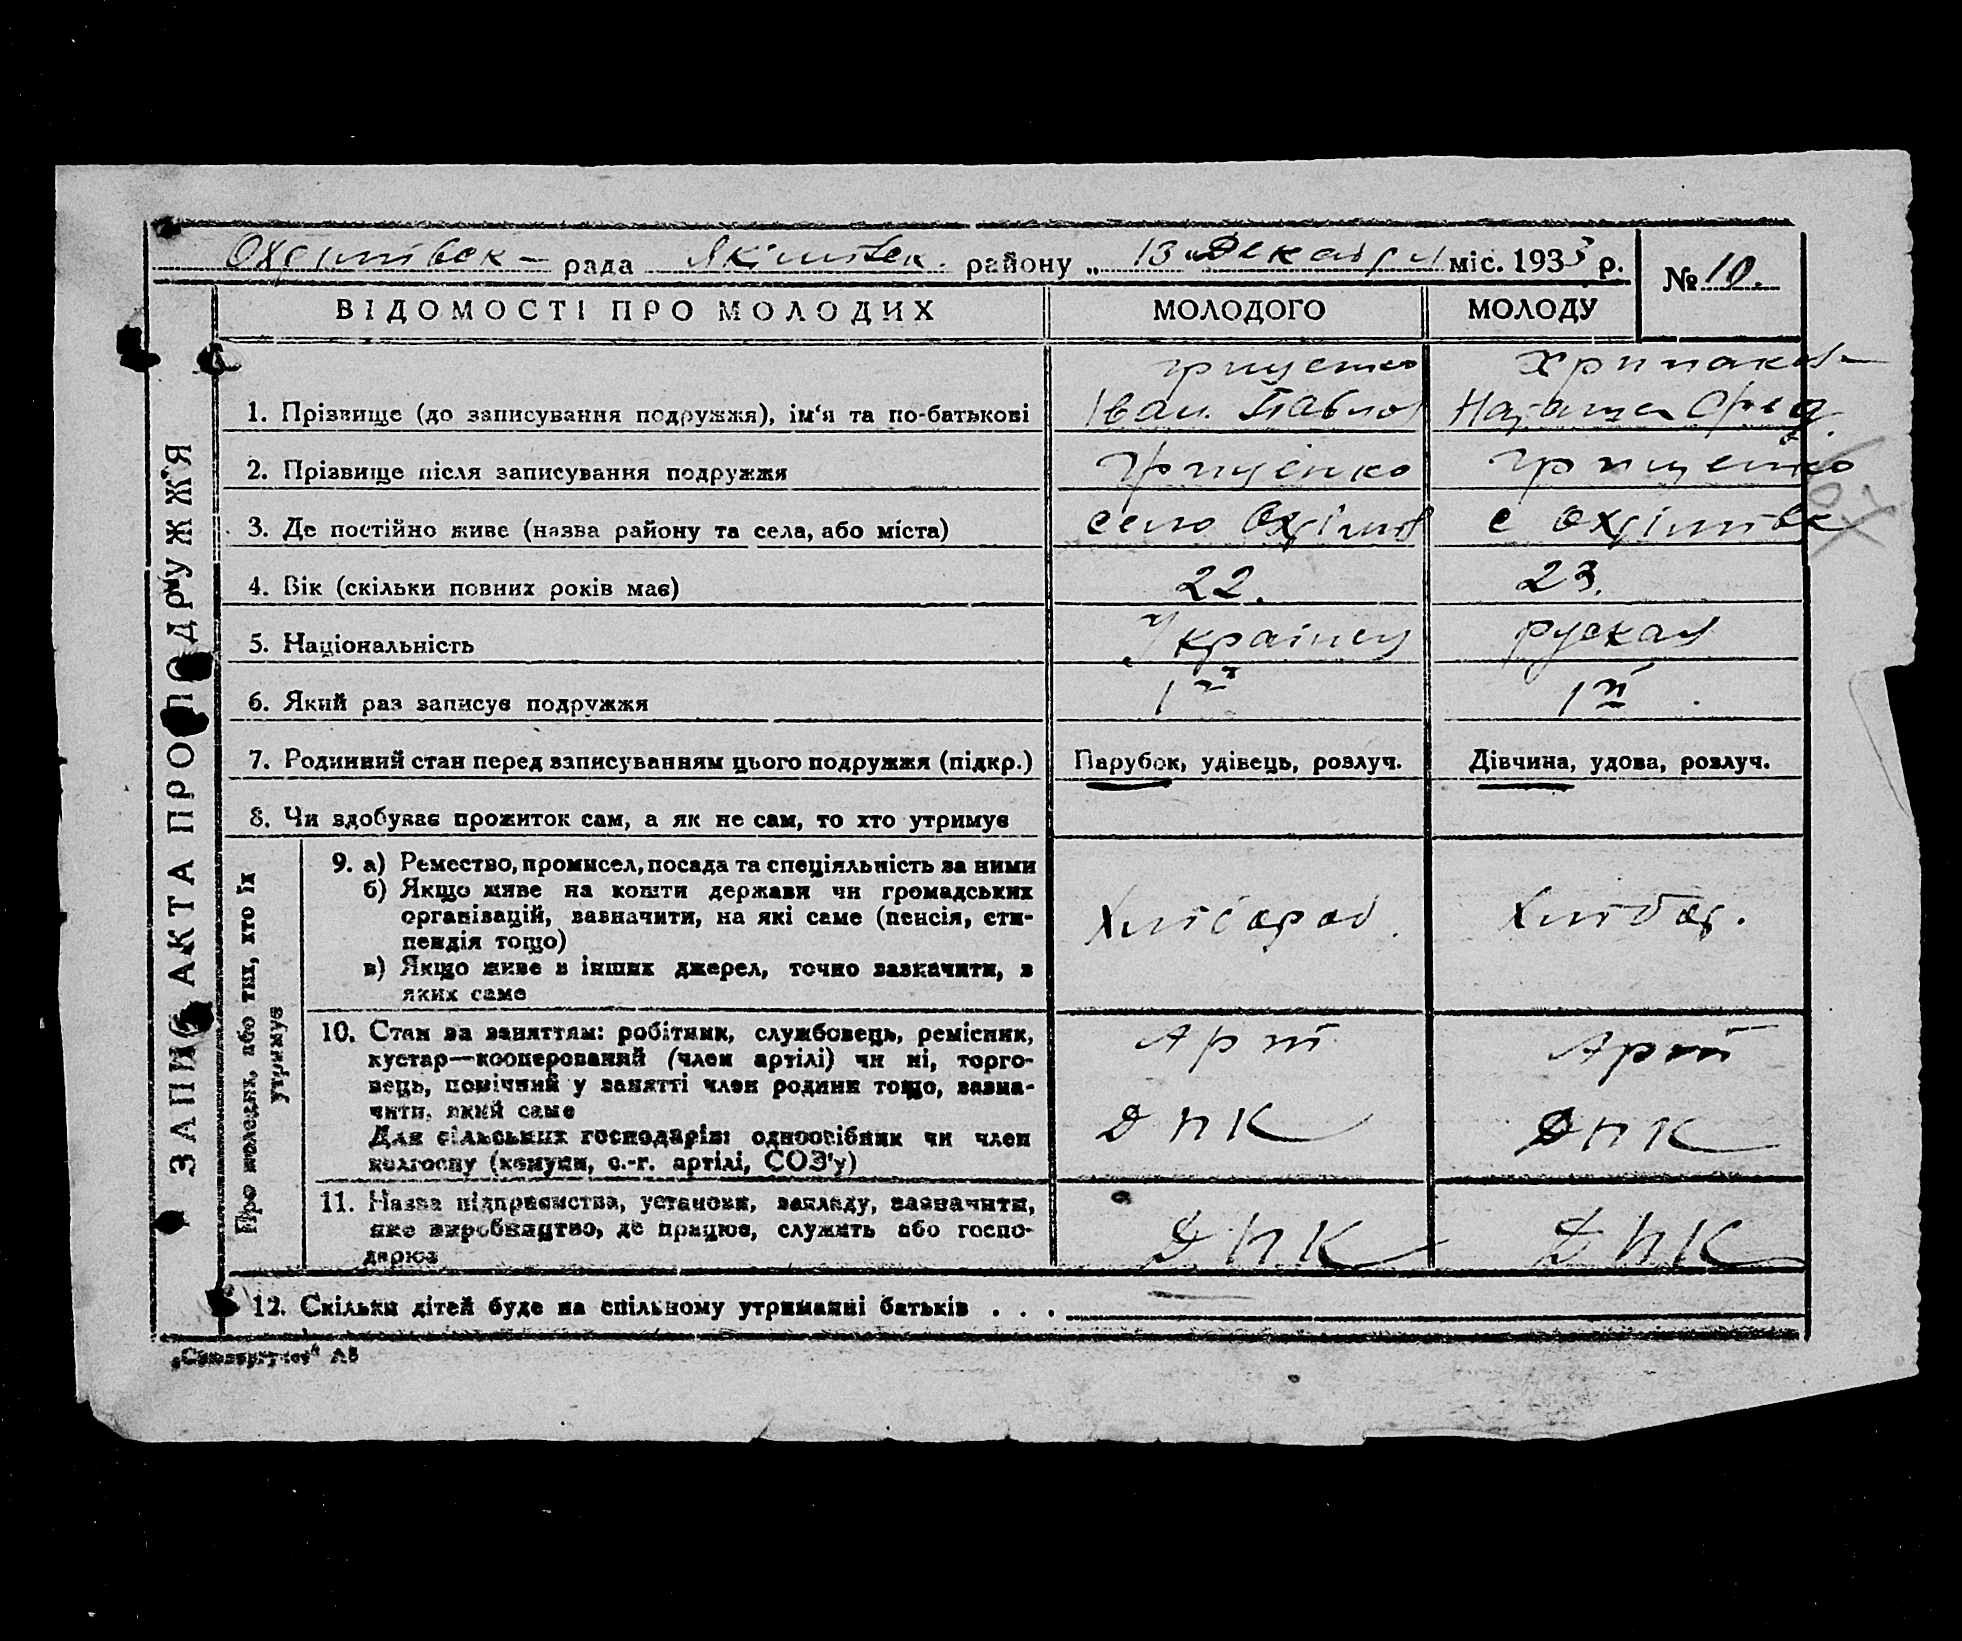 Охрімівск – рада Якімівск. району „ 13 " Декабря міс. 1933 р.
№ 10.
ВІДОМОСТІ ПРО МОЛОДИХ МОЛОДОГО МОЛОДУ
ЗАПИС АКТА ПРО ПОДРУЖЖ'Я
Грищенко
1. Прізвище (до записування подружжя), ім'я та по-батькові Іван. Павлов
2. Прізвище після записування подружжя Грищенко Грищенко
3. Де постійно живе (назва району та села, або міста) село Охрімов с Охрімівк
4. Вік (скільки повних років має) 22. 23.
5. Національність Українец руская
6. Який раз записує подружжя 1й 1й
7. Родинний стан перед записуванням цього подружжя (підкр.) Парубок, удівець, розлуч. Дівчина, удова, розлуч.
8. Чи здобуває прожиток сам, а як не сам, то хто утримує
Про молодих, або тих, хто їх утримує
9. а) Ремество, промисел, посада та спеціяльність за ними
б) Якщо живе на кошти держави чи громадських
організацій, зазначити, на які саме (пенсія, сти-
пендія тощо)
в) Якщо живе з інших джерел, точно зазначити, з
яких саме
Хлібороб. Хлібор.
10. Стан за заняттям: робітник, службовець, ремісник,
кустар—кооперований (член артілі) чи ні, торго-
вець, помічний у занятті член родини тощо, зазна-
чити, який саме
Для сільських господарів: одноосібник чи член
колгоспу (комуни, с.-г. артілі, СОЗ'у)
Арт Арт
ДНК ДНК
11. Назва підприємства, установи, закладу, зазначити,
яке виробництво, де працює, служить або госпо-
дарює
ДНК ДНК
12. Скільки дітей буде на спільному утриманні батьків . . .